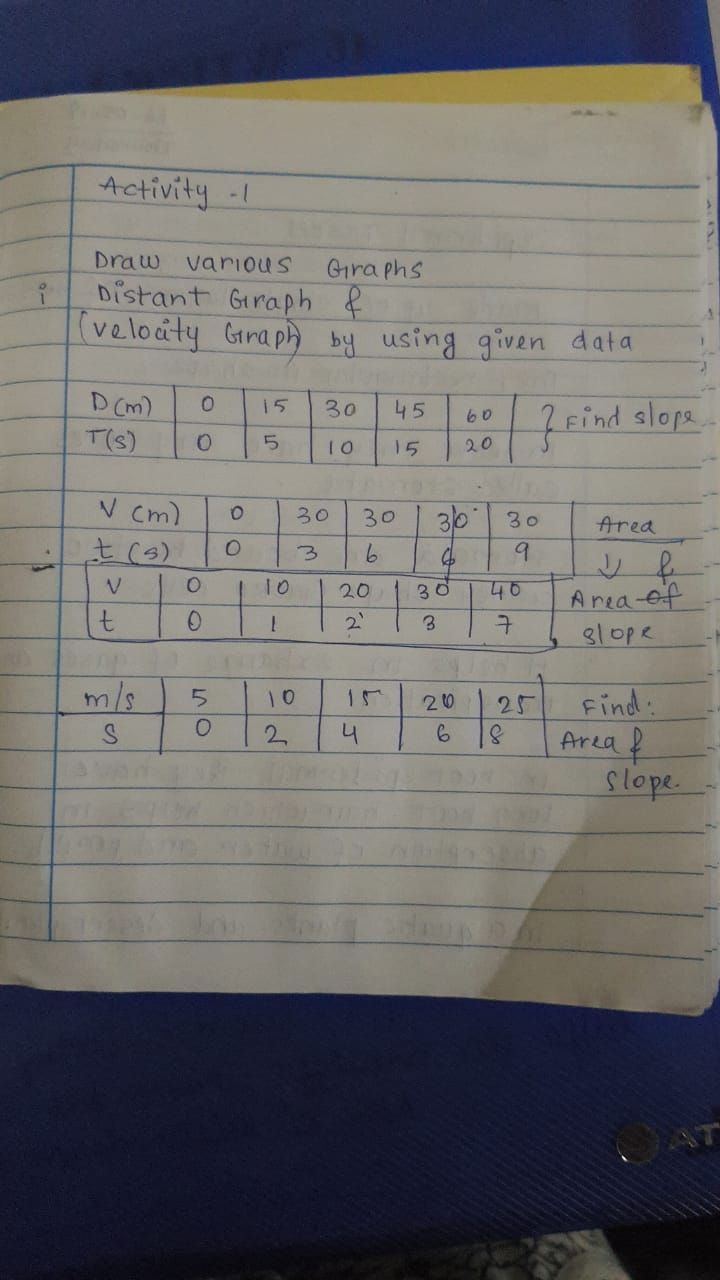 Activity - 1
Draw various Graphs
i Distant Graph &
(velocity Graph) by using given data
D (m) 0 15 30 45 60 } Find slope
T(s) 0 5 10 15 20
V (m) 0 30 30 30 30 Area
t (s) 0 3 6 9 &
V 0 10 20 30 40 Area of
t 0 1 2 3 7 slope
m/s 5 10 15 20 25 Find:
S 0 2 4 6 8 Area &
Slope.
AT